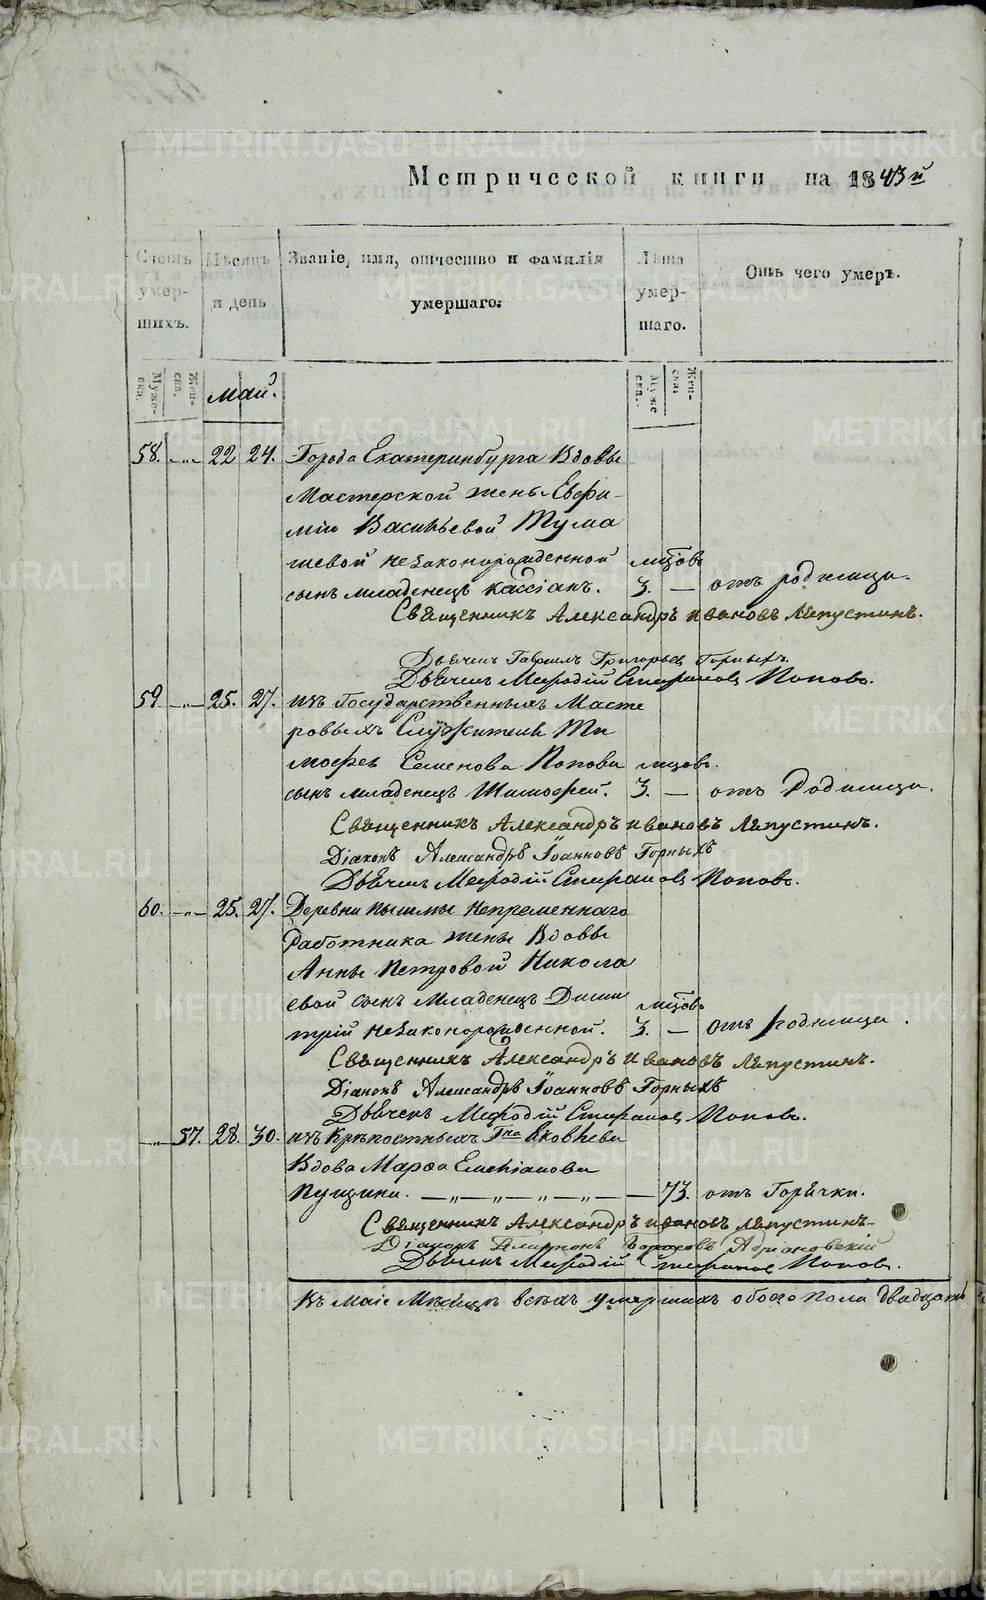 Метрической книги на 1843й
Счетъ умер-шихъ.
Мѣсяцъ и день
Званіе, имя, отчество и фамилія умершаго.
Лѣта умер-шаго.
Отъ чего умеръ.
Муже-ска.
Жен-ска.
Май.
Муже-ска.
Жен-ска.
58. -„- 22 24. Города Екатеринбурга Вдовы
Мастерской жены Евфи-
міи Васильевой Тума
шевой незаконорожденной мцовъ
сынъ младенецъ Кассіанъ. 3. — отъ родимца.
Священникъ Александръ Ивановъ Лѣпустинъ.
Дьячекъ Гавріилъ Григорьевъ Горныхъ.
Дьячекъ Меѳодій Стефановъ Поповъ.
59. -„- 25. 27. изъ Государственныхъ Масте
ровыхъ Служителя Ти
мофея Семенова Попова мцовъ.
сынъ младенецъ Тимофей. 3. — отъ Родимца.
Священникъ Александръ Ивановъ Лѣпустинъ.
Діаконъ Александръ Іоанновъ Горныхъ
Дьячекъ Меѳодій Стефановъ Поповъ.
60. -„- 25. 27. Деревни Пышмы Непременнаго
Работника жены Вдовы
Анны Петровой Никола
евой сынъ Младенецъ Дими мцовъ
трій незаконорожденной. 3. — отъ родимца.
Священникъ Александръ Ивановъ Лѣпустинъ.
Діаконъ Александръ Іоанновъ Горныхъ
Дьячекъ Меѳодій Стефановъ Поповъ.
-„- 57. 28. 30. изъ Крѣпостныхъ Гна Яковлева
Вдова Марѳа Емельянова
Пущина. —„—„—„—„— 73. отъ Горячки.
Священникъ Александръ Ивановъ Лѣпустинъ
Діаконъ Адріановскій
Дьячекъ Меѳодій Стефановъ Поповъ.
Въ Маіе Мѣсяцѣ всѣхъ умершихъ обоего пола двадцать
METRIKI.GASO-URAL.RU